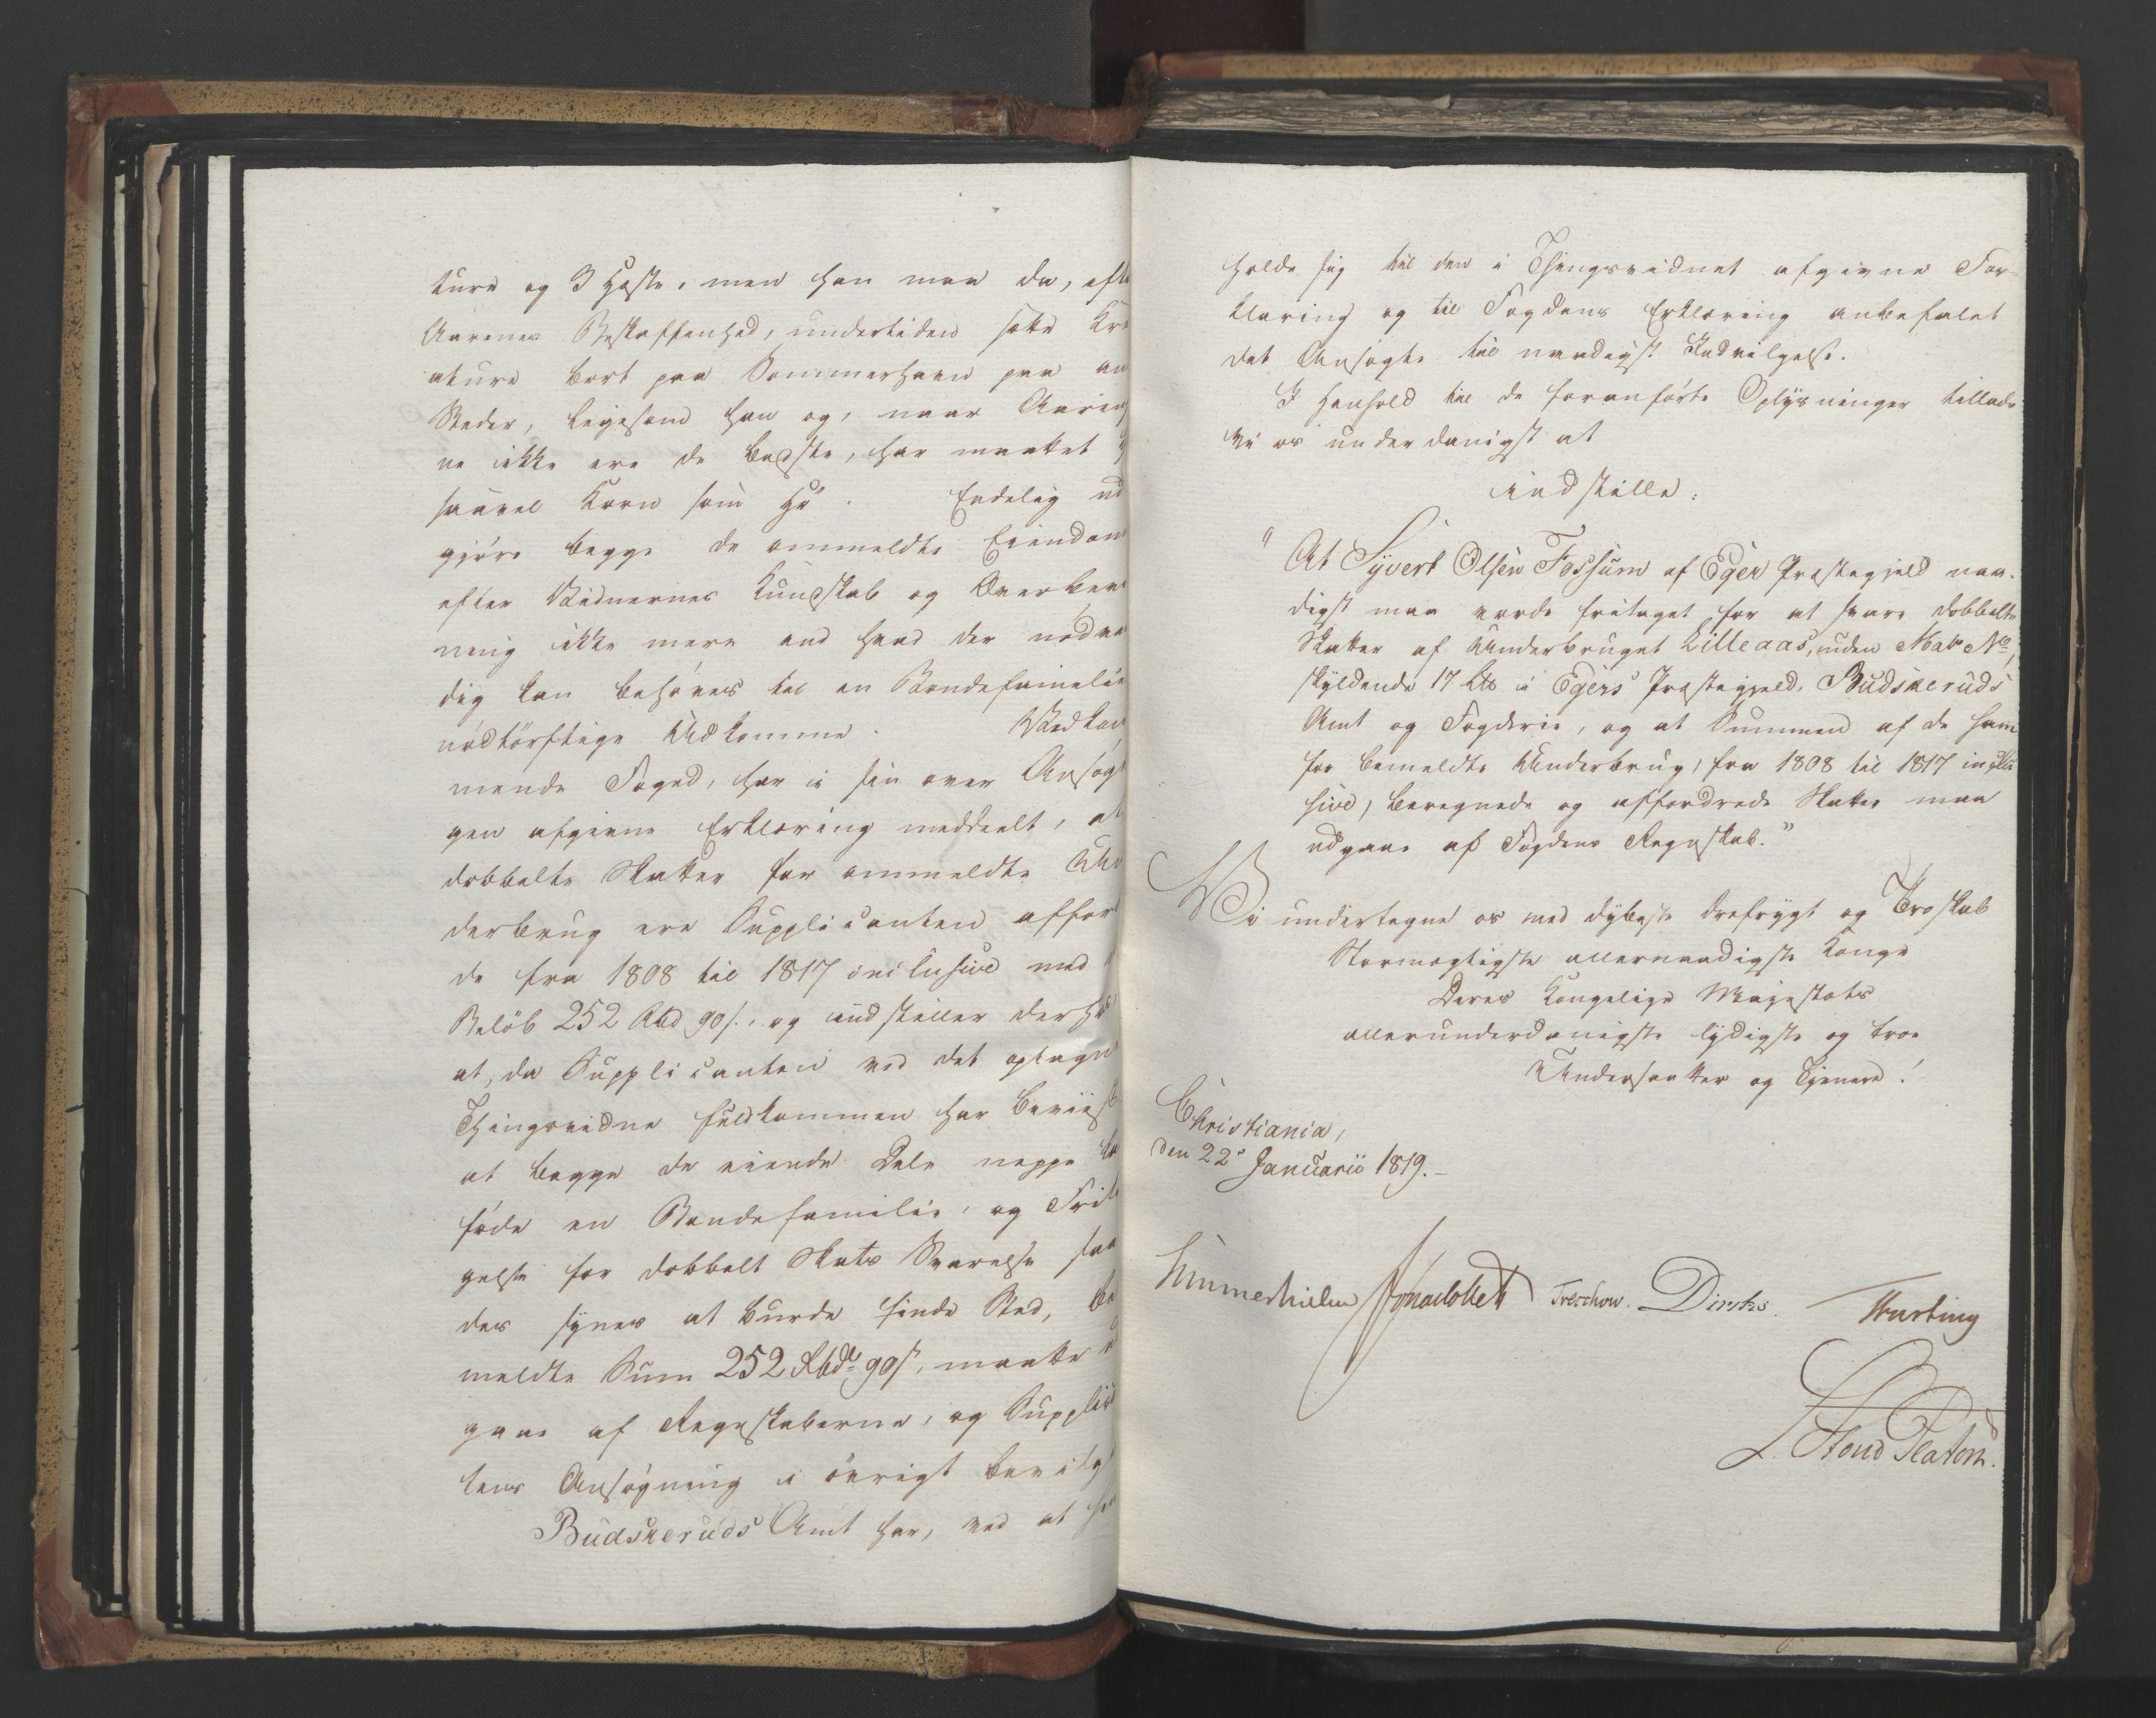 ture og 3 Heste, men han maa da, efte
Aarenes Beskaffenhed, undertiden sætte Kre
ature bort paa Sommerhavn paa an
Steder, ligesom han og, naar Aarin
ne ikke ere de bedste, har maattet
saavel Korn som Hø. Endelig ud
gjøre begge de ommeldte Eiendom
efter Vidnernes Kundskab og Overbev
ning ikke mere end hvad der nødve
dig kan behøves til en Bondefamilies
nødtørftige Udkomme. Vedkom
mende Foged, har i sin over Ansøgn
gen afgivne Erklæring meddeelt, at
dobbelte Skatter for ommeldte Un
derbrug ere Supplicanten affor
de fra 1808 til 1817 inclusive med
Beløb 252 Rbd 90 s., og indstiller derhos
at, da Supplicanten ved det optagne
Thingsvidne fuldkommen har beviist
at begge de eiende Dele neppe kan
føde en Bondefamilie, og Frita
gelse for dobbelt Skats Svarelse saa
des synes at burde finde Sted, be
meldte Sum 252 Rbdr 90 s, maatte ud
gaae af Regnskaberne, og Supplic
tens Ansøgning i øvrigt bevilges
Budskeruds Amt har, ved at hen
holde sig til den i Thingsvidnet afgivne For-
klaring og til Fogdens Erklæring anbefalet
det Ansøgte til naadigst Indvilgelse.
I Henhold til de foranførte Oplysninger tillade
Vi os underdanigst at
indstille:
"At Syvert Olsen Fossum af Eger Præstegjeld naa-
digst maa vorde fritaget for at svare dobbelte
Skatter af Underbruget Lilleaas, uden Matr No,
skyldende 17 Lb i Egers Præstegjeld, Budskeruds
Amt og Fogderie, og at Summen af de ham
for bemeldte Underbrug, fra 1808 til 1817 inclu
sive, beregnede og affordrede Skatter maa
udgaae af Fogdens Regnskab."
Vi undertegne os med dybeste Ærefrygt og Troskab
Stormægtigste allernaadigste Konge
Deres Kongelige Majestæts
allerunderdanigste lydigste og troe
Undersaatter og Tjenere!
Christiania,
den 22de Januarii 1819.-
Hummerhielm Treschow. Diriks.